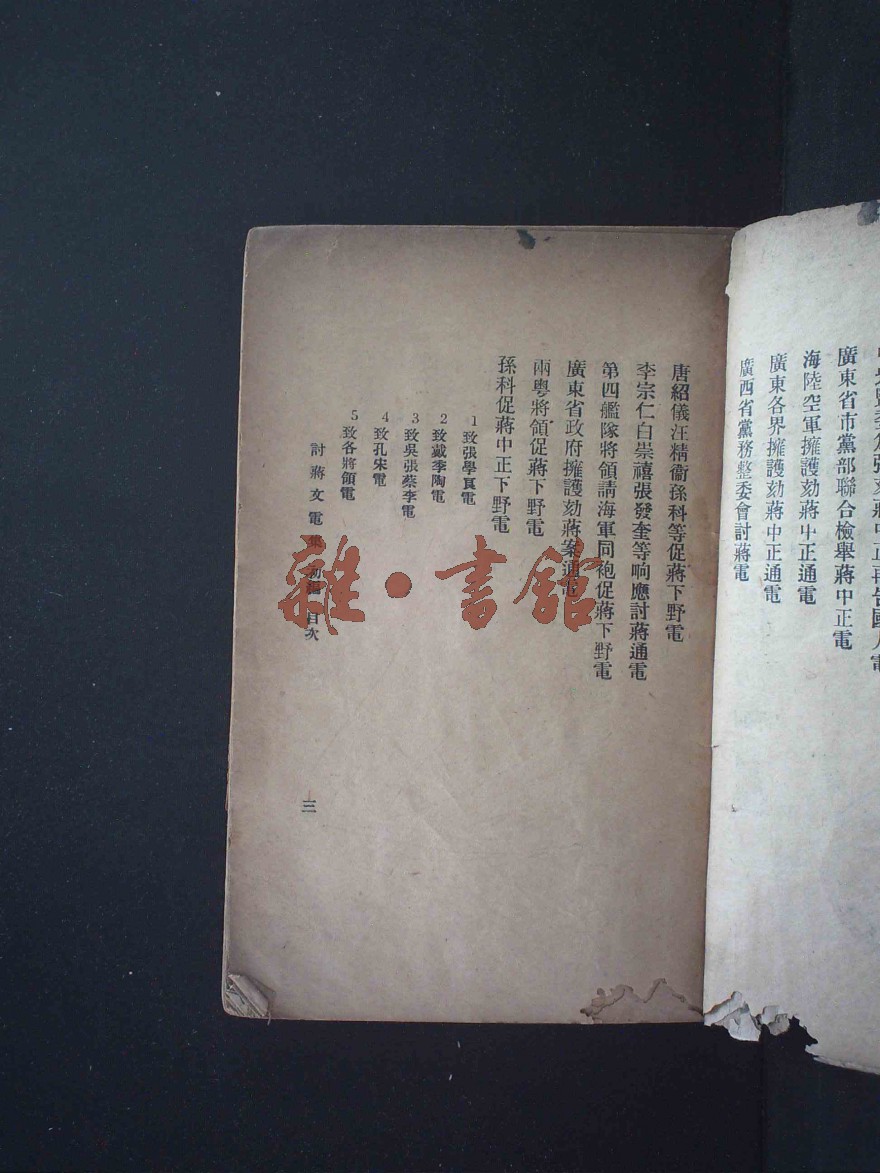 劾蔣中正再告國人電
廣東省市黨部聯合檢舉蔣中正電
海陸空軍擁護劾蔣中正通電
廣東各界擁護劾蔣中正通電
廣西省黨務整委會討蔣電
唐紹儀汪精衞孫科等促蔣下野電
李宗仁白崇禧張發奎等响應討蔣通電
第四艦隊將領請海軍同袍促蔣下野電
廣東省政府擁護劾蔣案通電
兩粵將領促蔣下野電
孫科促蔣中正下野電
1致張學良電
2致戴季陶電
3致吳張蔡李電
4致孔宋電
5致各將領電
討蔣文電集 初編 目次
三
雜·書館